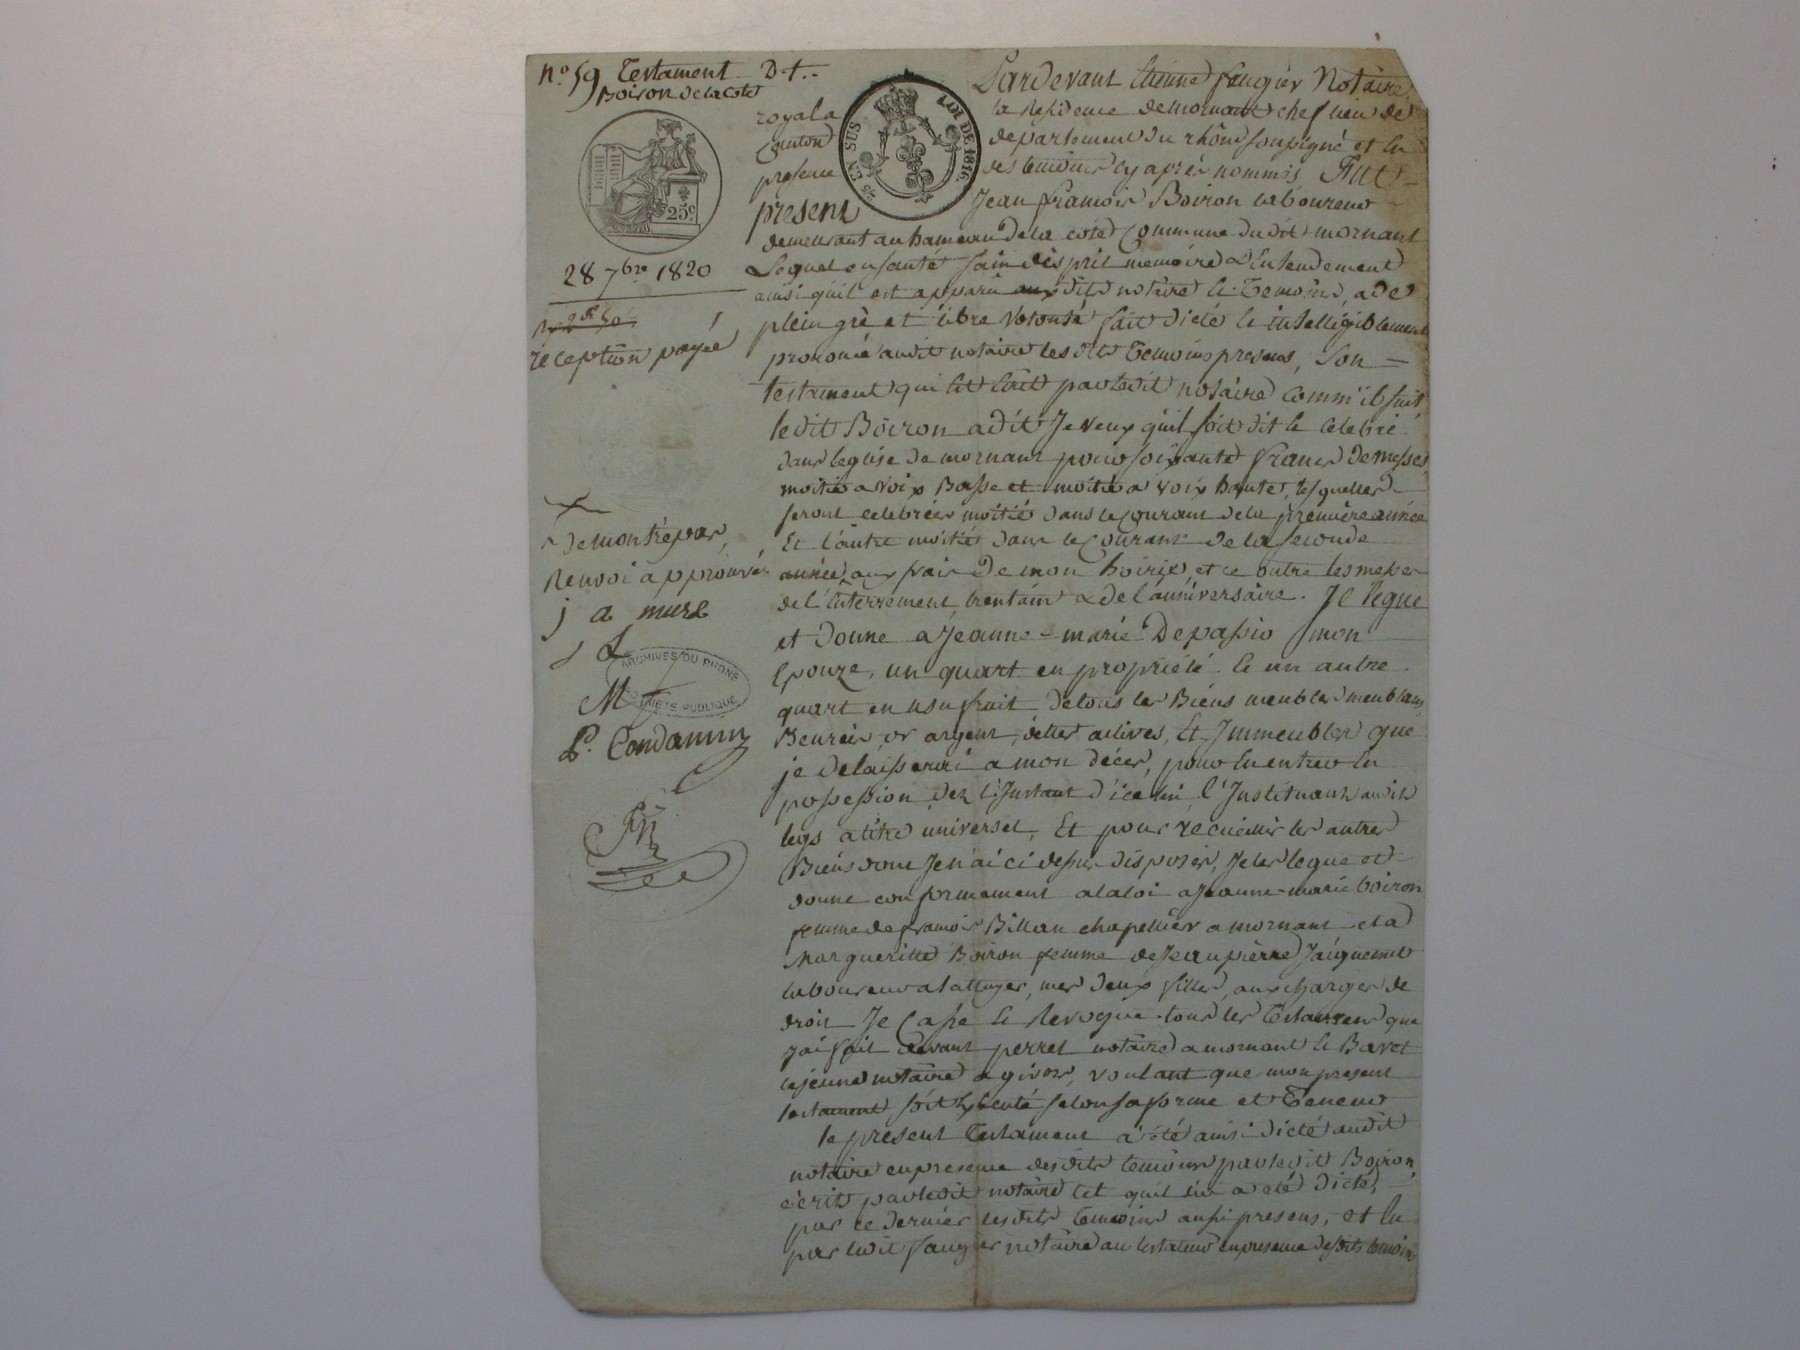 N.o 59 Testament D.t..
Boiron de la Coté
25 c.
5/10 EN SUS
LOI DE 1816.
28 7bre 1820
réception payée
de montrépar,
Renvoi approuvé
j a mure
ARCHIVES DU RHONE
PUBLIQUE
P. Condamin
Pardevant Etienne faugier Notaire
royal a la Residence de mornant chef lieu de
Canton departement du rhône soussigné et en
presence des temoins cy après nommés Fut
présent Jean françois Boiron laboureur
demeurant au hameau de la coté Commune du dit mornant
Lequel en santé sain d'esprit memoire & Entendement
ainsi qu'il est apparu aux dits notaire & Temoins, a de
plein gré et libre volonté fait dicté & intelligiblement
prononcé audit notaire les dits temoins presens, Son =
testament qui est Ecrit par ledit notaire comm'il suit
ledit Boiron a dit Je veux qu'il soit dit & célébré
dans leglise de mornant pour soixante francs de messes
moitié a voix Basse et moitié a voix haute, lesquelles
seront celebrées moitié dans le Courant de la première année
Et l'autre moitié dans le Courant de la seconde
année, aux frais de mon hoirie, et ce outre les messes
de l'Enterrement, trentain & de l'anniversaire. Je légue
et donne a Jeanne-marie Depassio mon
Epouze, un quart en propriété & un autre
quart en usufruit de tous les Biens meubles meublans,
Denrées, or argent, dettes actives, Et Immeubles que
je delaisserai a mon décès, pour en entrer en
possession dez l'Instant d'icelui l'Instituant audit
legs a titre universel, Et pour recueillir les autres
Biens dont Je n'ai ci dessus disposés, Je les legue et
donne conformement a la loi a Jeanne-marie boiron
femme de françois Billan chapellier a mornant et a
Margueritte Boiron femme de Jean pierre Jaiquemet
laboureur a lattuyer, mes deux filles, aux charges de
droit Je Casse & Revoque tous les Testamens que
j'ai fait devant perret notaire a mornant & Baret
le jeune notaire a givors, voulant que mon present
testament soit Exécuté selon sa forme et Teneur
le présent Testament a été ainsi dicté audit
notaire en presence des dits temoins par ledit Boiron,
écrit par ledit notaire tel qu'il lui a été dicté,
par ce dernier les dits temoins aussi presens, et lu
par ledit faugier notaire au testateur en presence desdits temoins